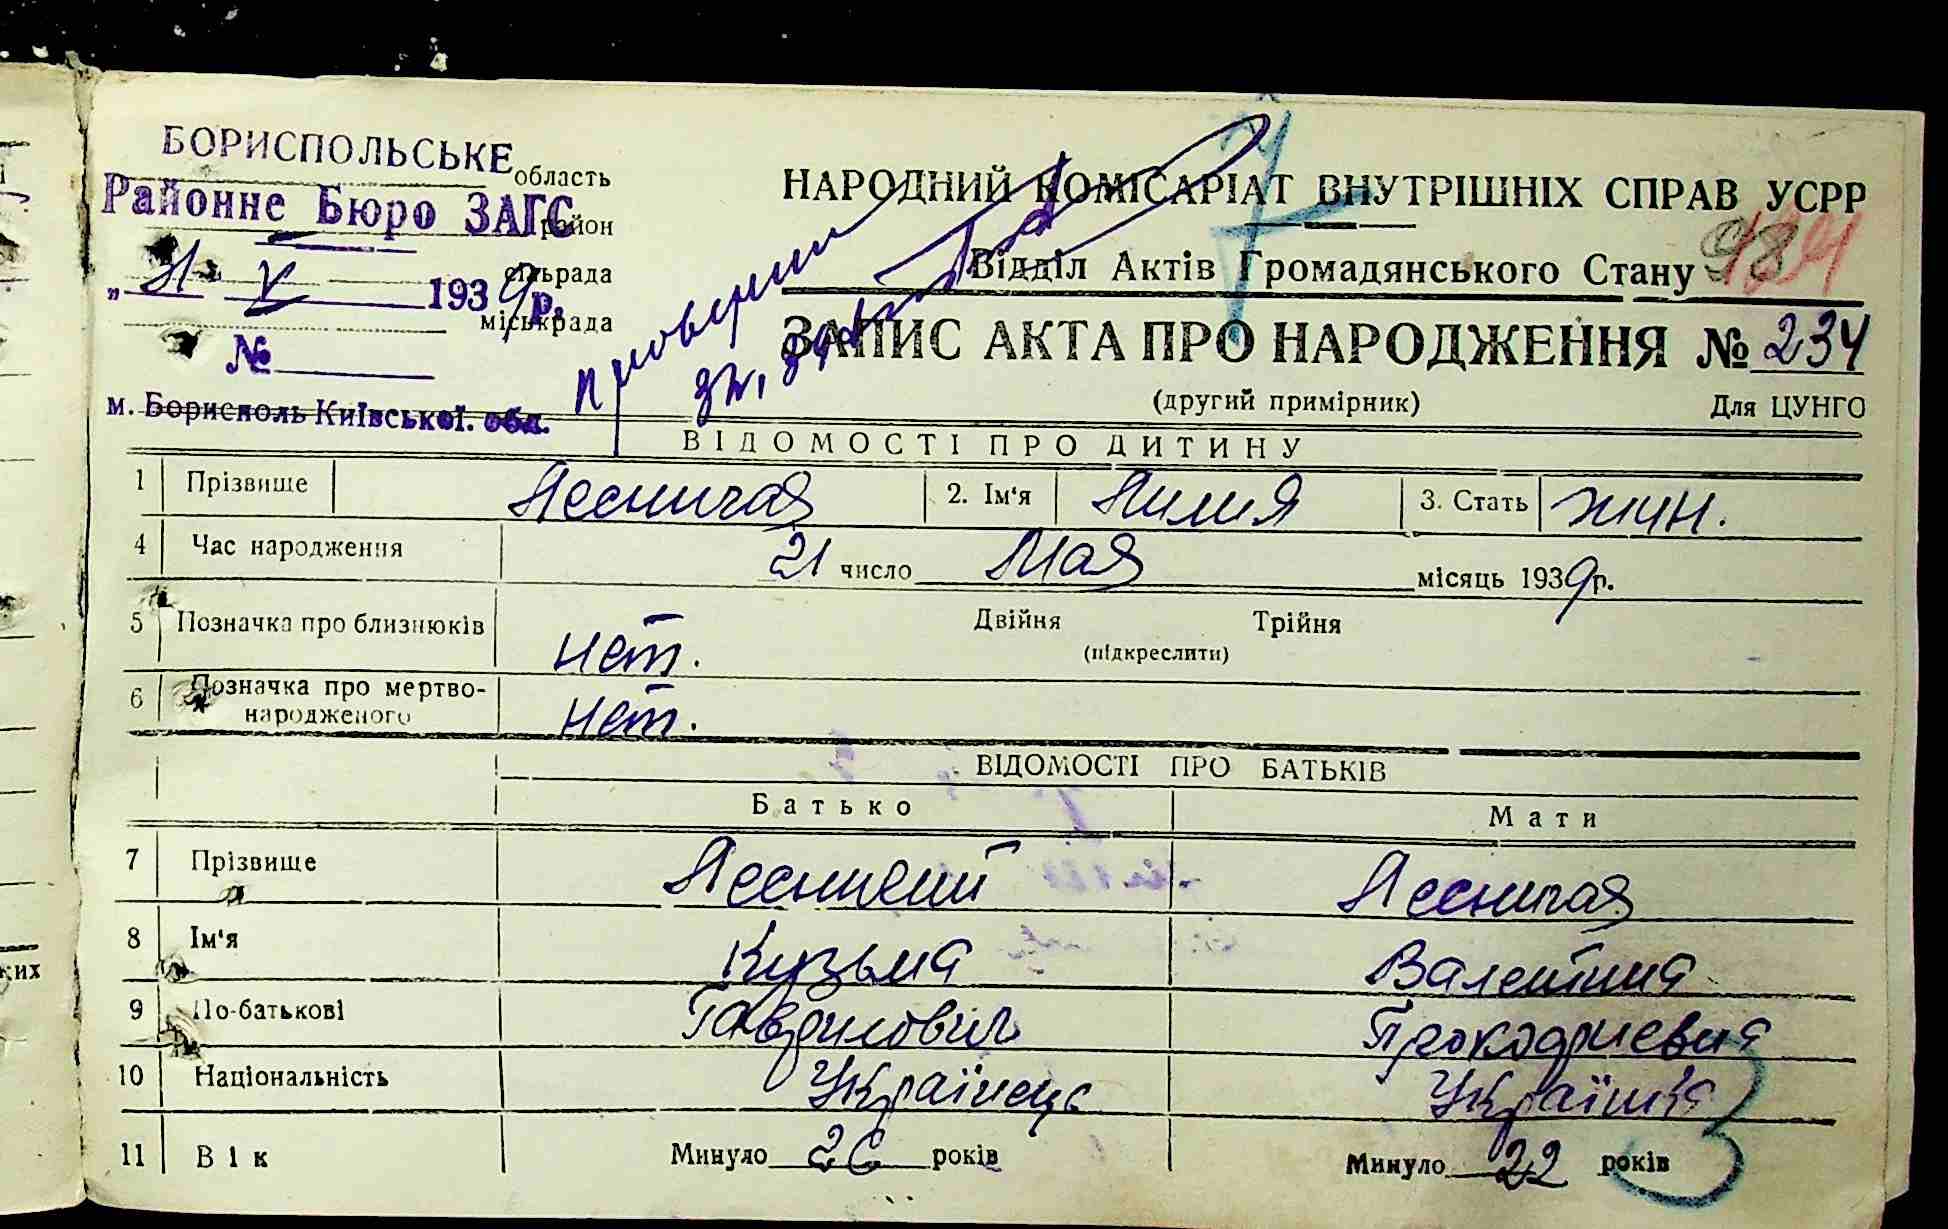 БОРИСПОЛЬСЬКЕ область
Районне Бюро ЗАГС район
„31 V 1939 р. сільрада
міськрада
№
м. Борисполь Київської. обл.
НАРОДНИЙ КОМІСАРІАТ ВНУТРІШНІХ СПРАВ УСРР
Відділ Актів Громадянського Стану 98
ЗАПИС АКТА ПРО НАРОДЖЕННЯ № 234
(другий примірник) Для ЦУНГО
ВІДОМОСТІ ПРО ДИТИНУ
1 Прізвище Лесничая 2. Ім'я Лилия 3. Стать жин.
4 Час народження 21 число Мая місяць 1939 р.
5 Позначка про близнюків нет. Двійня Трійня
(підкреслити)
6 Позначка про мертво-
народженого нет.
ВІДОМОСТІ ПРО БАТЬКІВ
Батько Мати
7 Прізвище Лесничий Лесничая
8 Ім'я Кузьма Валентина
9 По-батькові Гаврилович
10 Національність Українець Українка
11 Вік Минуло 26 років Минуло 22 років
ких